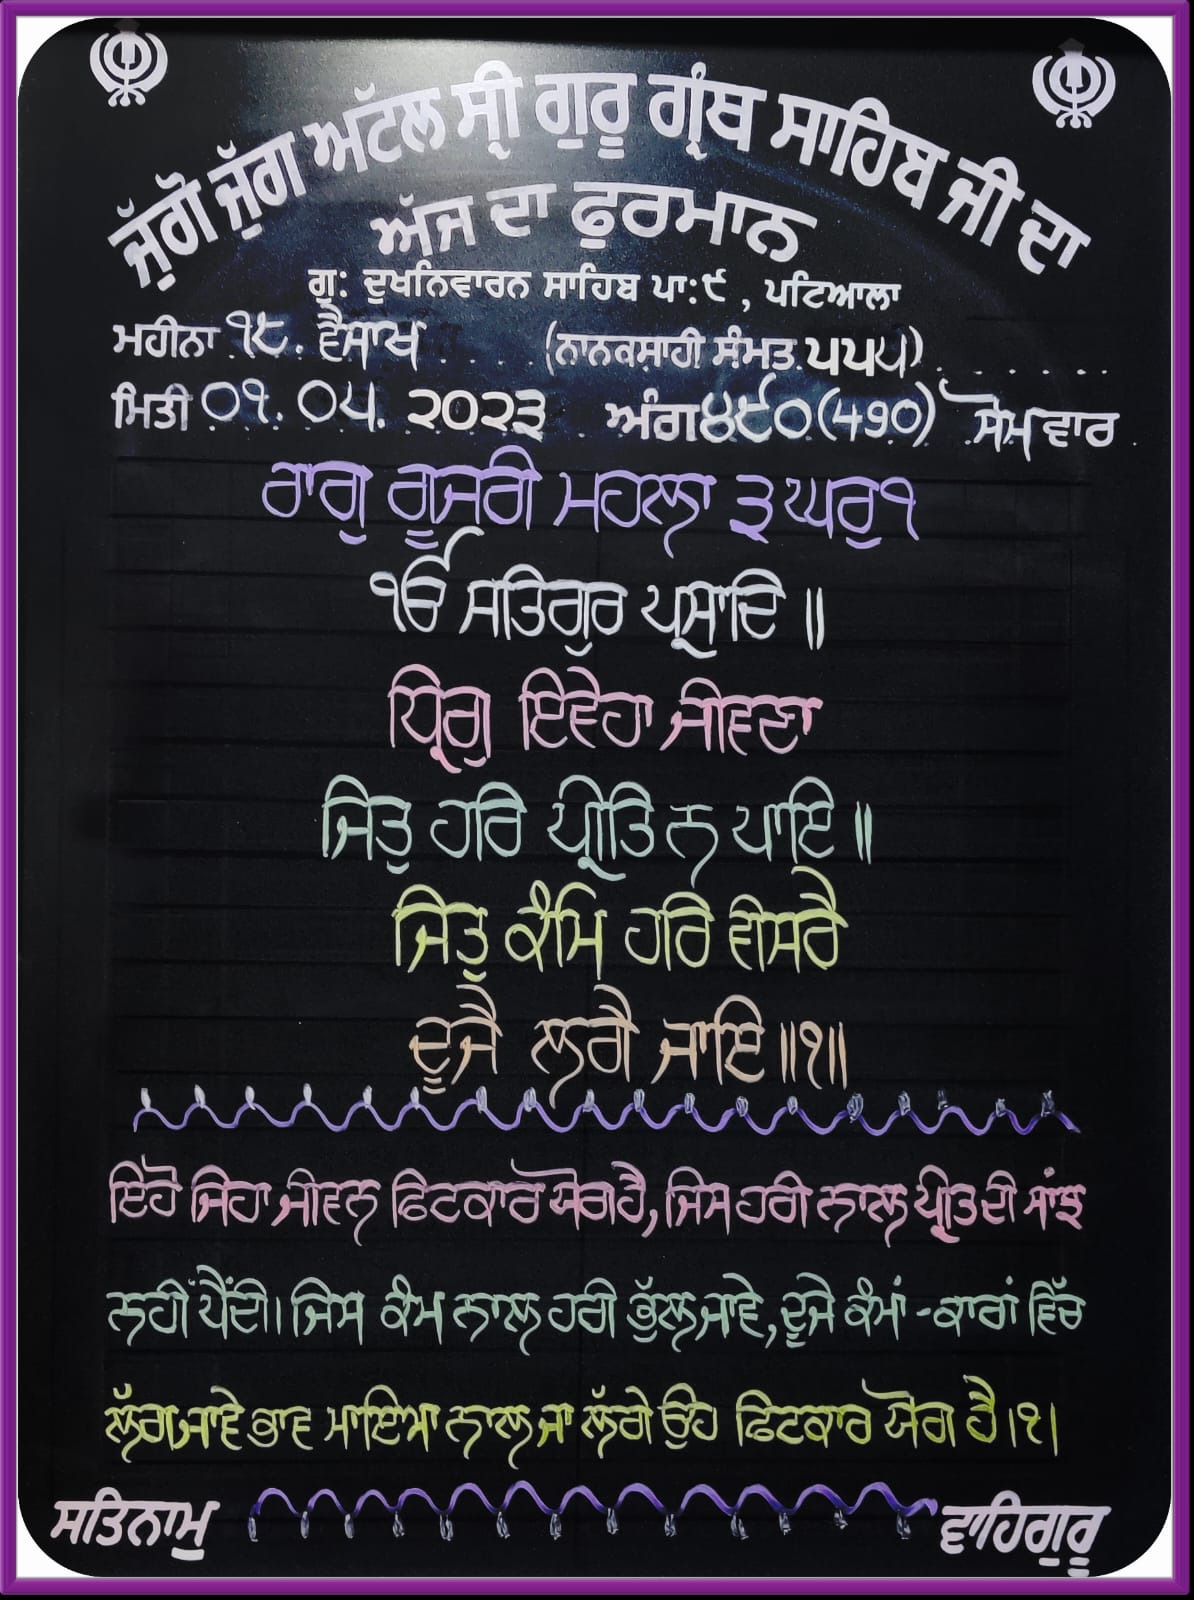 ਜੁੱਗੋ ਜੁੱਗ ਅਟੱਲ ਸ੍ਰੀ ਗੁਰੂ ਗ੍ਰੰਥ ਸਾਹਿਬ ਜੀ ਦਾ
ਅੱਜ ਦਾ ਫੁਰਮਾਨ
ਗੁ: ਦੁਖਨਿਵਾਰਨ ਸਾਹਿਬ ਪਾ:੯ , ਪਟਿਆਲਾ
ਮਹੀਨਾ ੧੮ ਵੈਸਾਖ (ਨਾਨਕਸਾਹੀ ਸੰਮਤ ੫੫੫)
ਮਿਤੀ ੦੧. ੦੫. ੨੦੨੩ ਅੰਗ ੪੯੦ (490) ਸੋਮਵਾਰ
ਰਾਗੁ ਗੂਜਰੀ ਮਹਲਾ ੩ ਘਰੁ ੧
ੴ ਸਤਿਗੁਰ ਪ੍ਰਸਾਦਿ ॥
ਧ੍ਰਿਗੁ ਇਵੇਹਾ ਜੀਵਣਾ
ਜਿਤੁ ਹਰਿ ਪ੍ਰੀਤਿ ਨ ਪਾਇ ॥
ਜਿਤੁ ਕੰਮਿ ਹਰਿ ਵੀਸਰੈ
ਦੂਜੈ ਲਗੈ ਜਾਇ ॥੧॥
ਇਹੋ ਜਿਹਾ ਜੀਵਨ ਫਿਟਕਾਰ ਯੋਗ ਹੈ, ਜਿਸ ਹਰੀ ਨਾਲ ਪ੍ਰੀਤ ਦੀ ਸਾਂਝ
ਨਹੀਂ ਪੈਂਦੀ। ਜਿਸ ਕੰਮ ਨਾਲ ਹਰੀ ਭੁੱਲ ਜਾਵੇ, ਦੂਜੇ ਕੰਮਾਂ -ਕਾਰਾਂ ਵਿੱਚ
ਲੱਗ ਜਾਵੇ ਭਾਵ ਮਾਇਆ ਨਾਲ ਜਾ ਲੱਗੇ ਉਹ ਫਿਟਕਾਰ ਯੋਗ ਹੈ ।੧।
ਸਤਿਨਾਮੁ ਵਾਹਿਗੁਰੂ